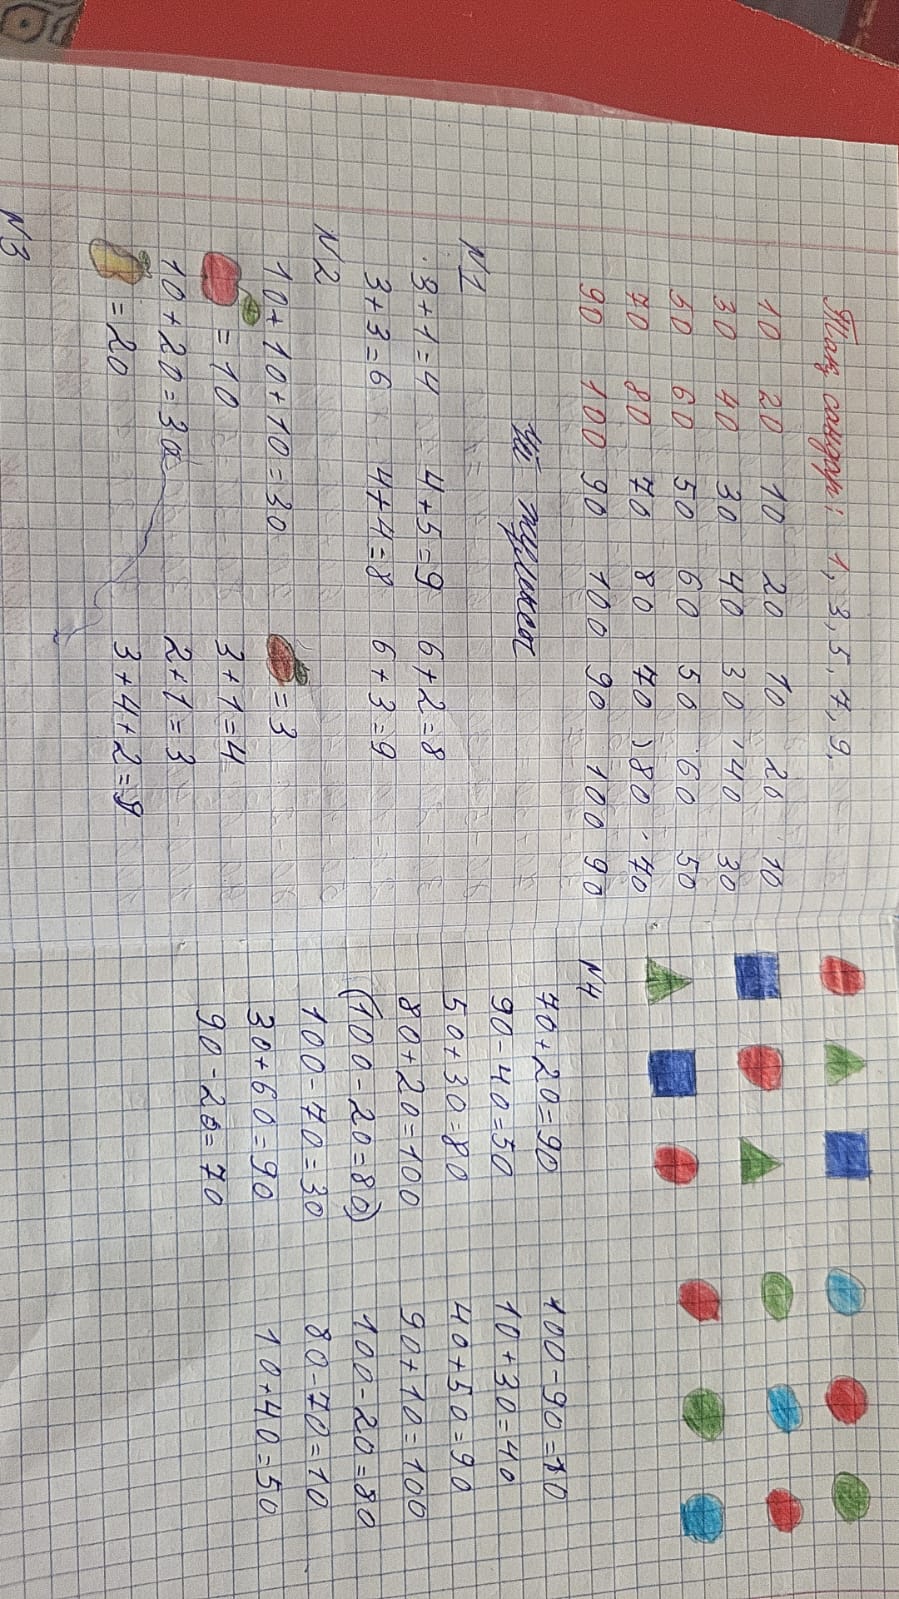 Тақ сандар: 1, 3, 5, 7, 9.
10 20 10 20 10 20 10
30 40 30 40 30 40 30
50 60 50 60 50 60 50
70 80 70 80 70 80 70
90 100 90 100 90 100 90
Үй жұмысы
№1
3+1=4 4+5=9 6+2=8
3+3=6 4+4=8 6+3=9
№2
10+10+10=30 =3
=10 3+1=4
10+20=30 2+1=3
=20 3+4+2=9
№3
№4
70+20=90 100-90=10
90-40=50 10+30=40
50+30=80 40+50=90
80+20=100 90+10=100
(100-20=80) 100-20=80
100-70=30 80-70=10
30+60=90 10+40=50
90-20=70